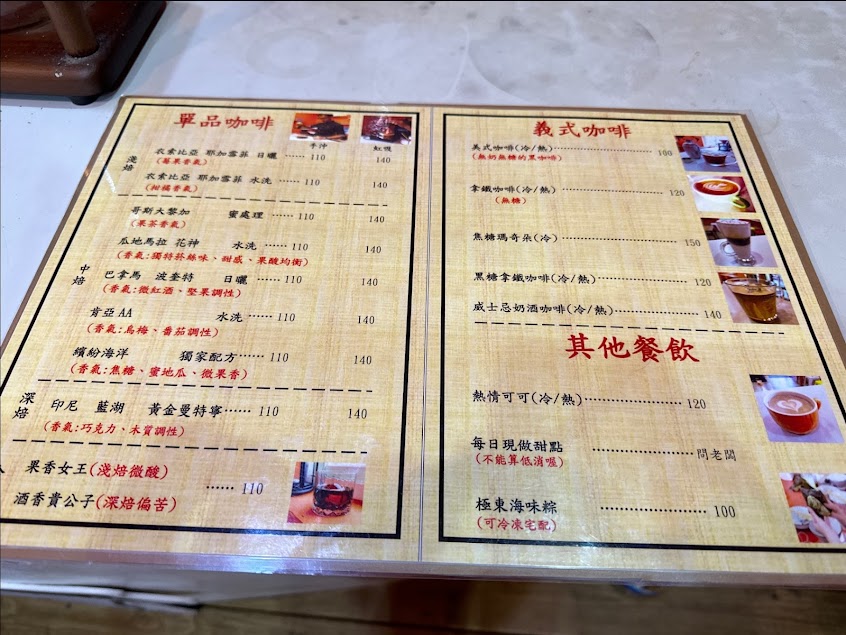 單品咖啡
手沖 虹吸
淺焙
衣索比亞 耶加雪菲 日曬 ······ 110 140
(莓果香氣)
衣索比亞 耶加雪菲 水洗 ······ 110 140
(柑橘香氣)
中焙
哥斯大黎加 蜜處理 ······ 110 140
(果茶香氣)
瓜地馬拉 花神 水洗 ······ 110 140
(香氣:獨特菸絲味、甜感、果酸均衡)
巴拿馬 波奎特 日曬 ······ 110 140
(香氣:微紅酒、堅果調性)
肯亞AA 水洗 ······ 110 140
(香氣:烏梅、番茄調性)
繽紛海洋 獨家配方 ······ 110 140
(香氣:焦糖、蜜地瓜、微果香)
深焙
印尼 藍湖 黃金曼特寧 ······ 110 140
(香氣:巧克力、木質調性)
果香女王(淺焙微酸)
酒香貴公子(深焙偏苦) ······ 110
義式咖啡
美式咖啡(冷/熱) ······ 100
(無奶無糖的黑咖啡)
拿鐵咖啡(冷/熱) ······ 120
(無糖)
焦糖瑪奇朵(冷) ······ 150
黑糖拿鐵咖啡(冷/熱) ······ 120
威士忌奶酒咖啡(冷/熱) ······ 140
其他餐飲
熱情可可(冷/熱) ······ 120
每日現做甜點 ······ 問老闆
(不能算低消喔)
極東海味粽 ······ 100
(可冷凍宅配)